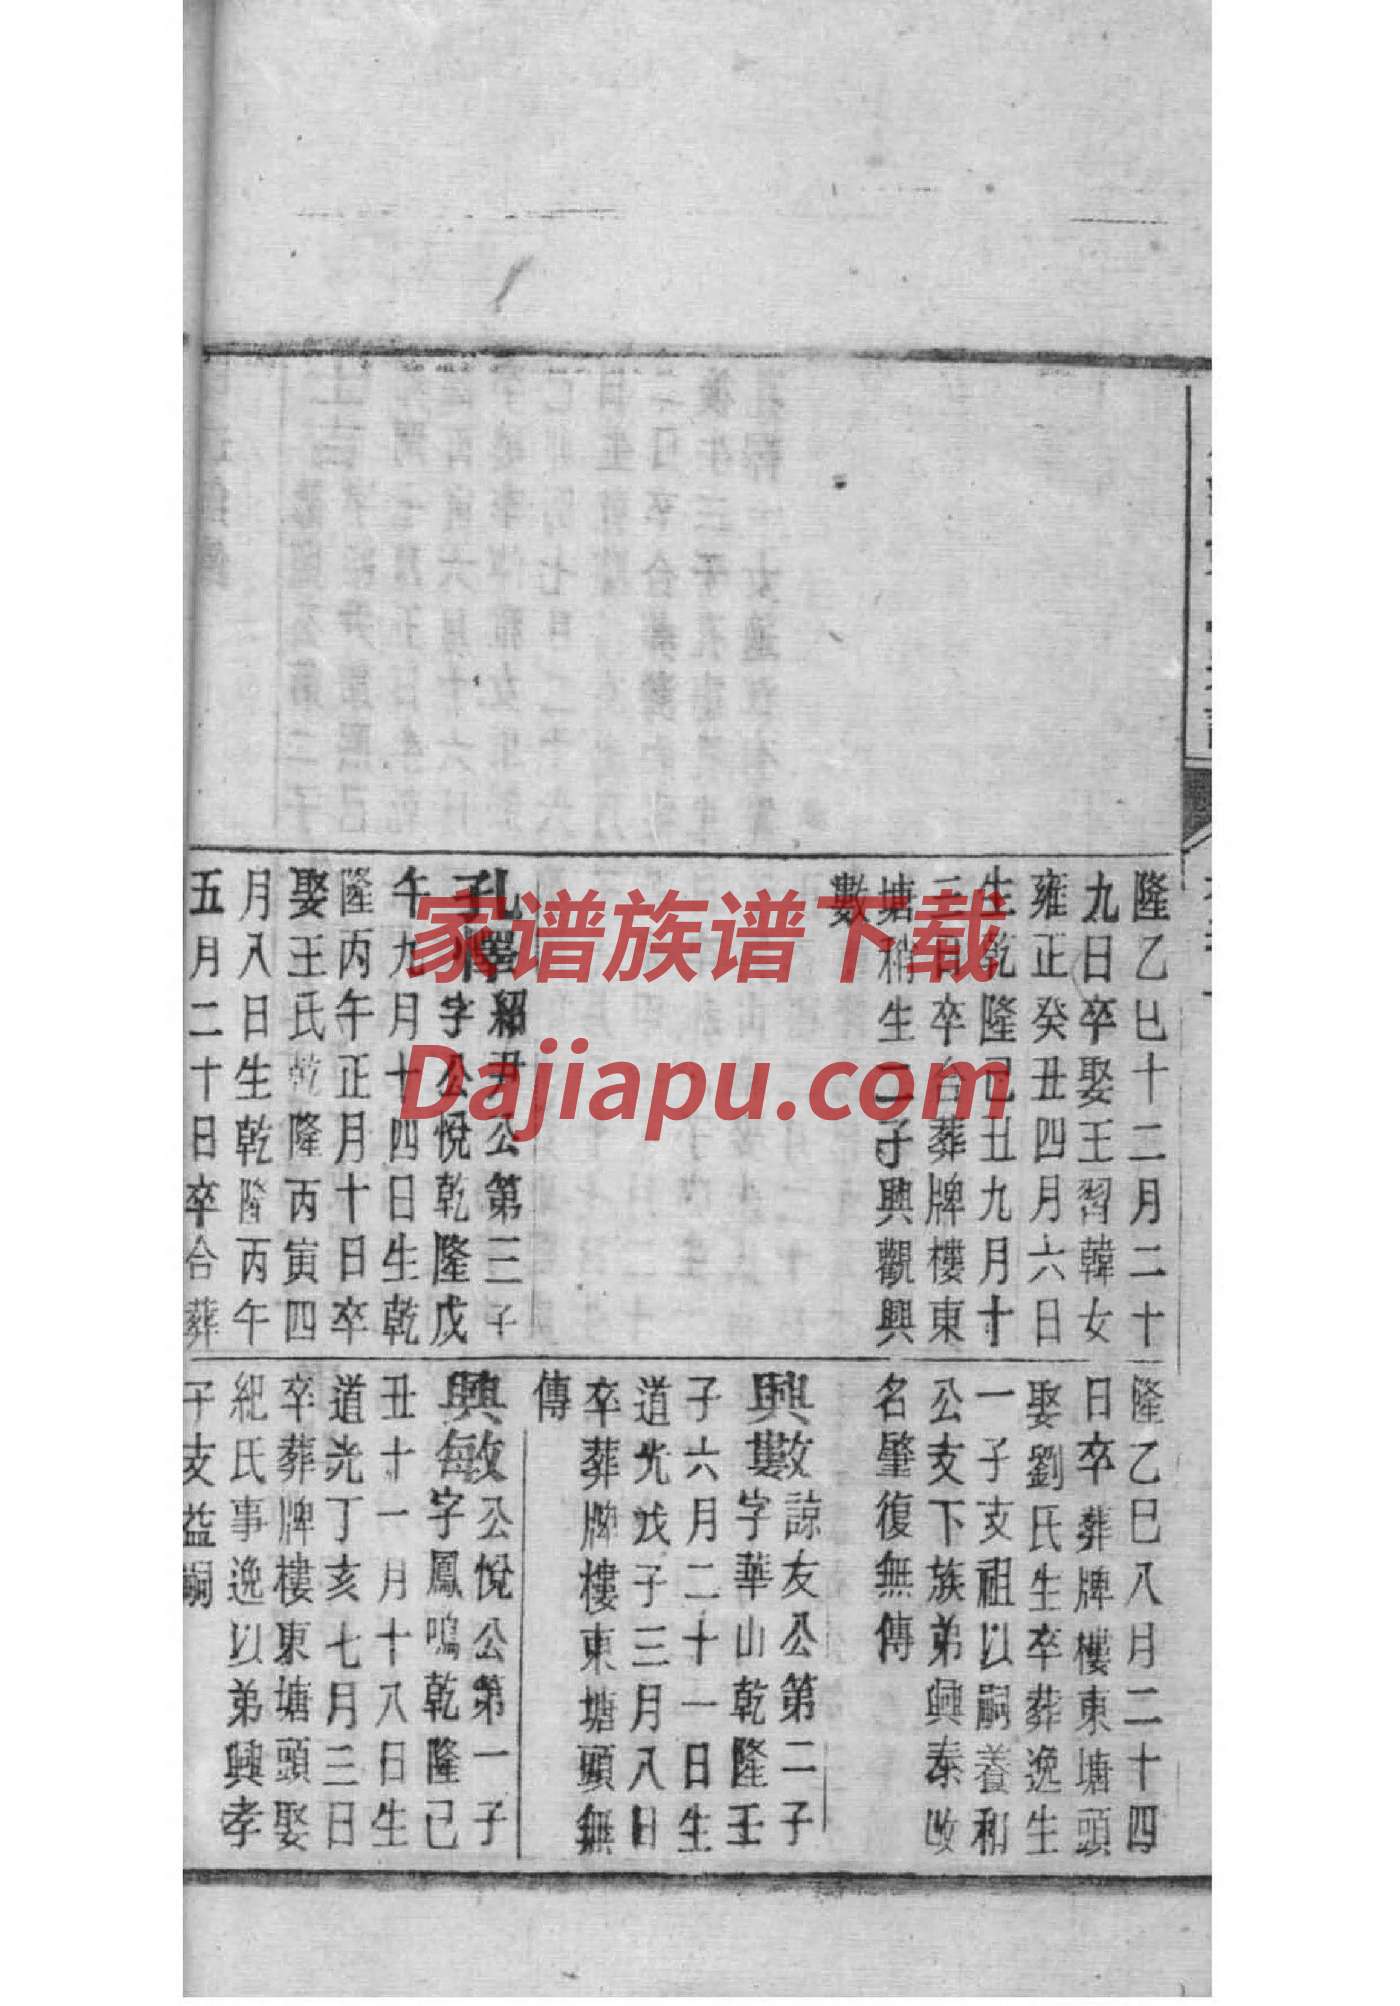 隆乙巳十二月二十
九日卒娶王習韓女
雍正癸丑四月六日
生乾隆己丑九月十
三日卒合葬牌樓東
塘稍生二子興觀興
數
紹尹公第三子
字公悅乾隆戊
午九月十四日生乾
隆丙午正月十日卒
娶王氏乾隆丙寅四
月八日生乾隆丙午
五月二十日卒合葬
隆乙巳八月二十四
日卒葬牌樓東塘頭
娶劉氏生卒葬逸生
一子支祖以嗣養和
公支下族弟興泰改
名肇復無傳
興數諒友公第二子
字華山乾隆壬
子六月二十一日生
道光戊子三月八日
卒葬牌樓東塘頭無
傳
興敏公悅公第一子
字鳳鳴乾隆己
丑十一月十八日生
道光丁亥七月三日
卒葬牌樓東塘頭娶
紀氏事逸以弟興孝
子支益嗣
家谱族谱下载
Dajiapu.com